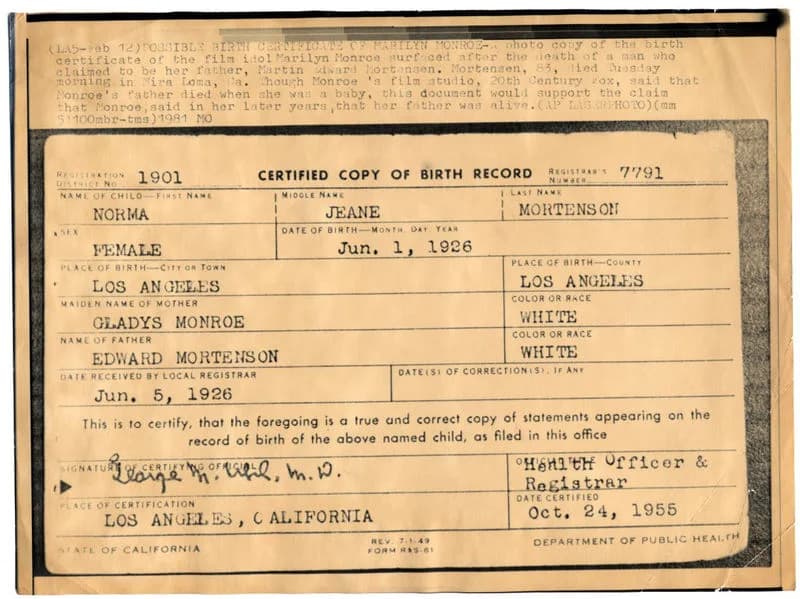 (LA5-Feb 12)POSSIBLE BIRTH CERTIFICATE OF MARILYN MONROE-A photo copy of the birth
certificate of the film idol Marilyn Monroe surfaced after the death of a man who
claimed to be her father, Martin Edward Mortensen. Mortensen, 83, died Tuesday
morning in Mira Loma, Ca. Though Monroe's film studio, 20th Century Fox, said that
Monroe's father died when she was a baby, this document would support the claim
that Monroe,said in her later years,that her father was alive.(AP LASERPHOTO)(mm
51100mbr-tms)1981 MO
REGISTRATION DISTRICT NO 1901 CERTIFIED COPY OF BIRTH RECORD REGISTRAR'S NUMBER 7791
NAME OF CHILD—FIRST NAME MIDDLE NAME LAST NAME
NORMA JEANE MORTENSON
SEX DATE OF BIRTH—MONTH, DAY, YEAR
FEMALE Jun. 1, 1926
PLACE OF BIRTH—CITY OR TOWN PLACE OF BIRTH—COUNTY
LOS ANGELES LOS ANGELES
MAIDEN NAME OF MOTHER COLOR OR RACE
GLADYS MONROE WHITE
NAME OF FATHER COLOR OR RACE
EDWARD MORTENSON WHITE
DATE RECEIVED BY LOCAL REGISTRAR DATE(S) OF CORRECTION(S), IF ANY
Jun. 5, 1926
This is to certify, that the foregoing is a true and correct copy of statements appearing on the
record of birth of the above named child, as filed in this office
SIGNATURE OF CERTIFYING OFFICIAL
George M. Uhl, M.D. Health Officer &
Registrar
PLACE OF CERTIFICATION DATE CERTIFIED
LOS ANGELES, CALIFORNIA Oct. 24, 1955
STATE OF CALIFORNIA REV. 7-1-49 DEPARTMENT OF PUBLIC HEALTH
FORM R&S-61